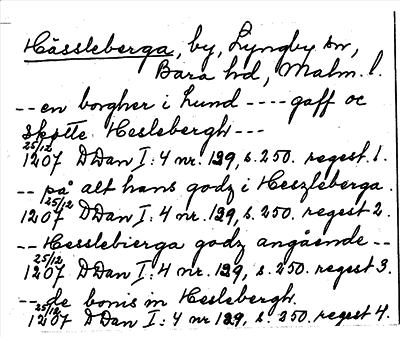 Hässleberga, by, Lyngby sn,
Bara hd, Malm. l.
-- en borgher i Lund ---- gaff oc
skøtte Heslebergh ---
25/12
1207 DDan I:4 nr. 129, s. 250. regest 1.
-- på alt hans godz i Heszleberga.
25/12
1207 DDan I:4 nr. 129, s. 250. regest 2.
-- Hesslebierga godz angående --
25/12
1207 DDan I:4 nr. 129, s. 250. regest 3.
-- de bonis in Heslebergh.
25/12
1207 DDan I:4 nr 129, s. 250. regest 4.